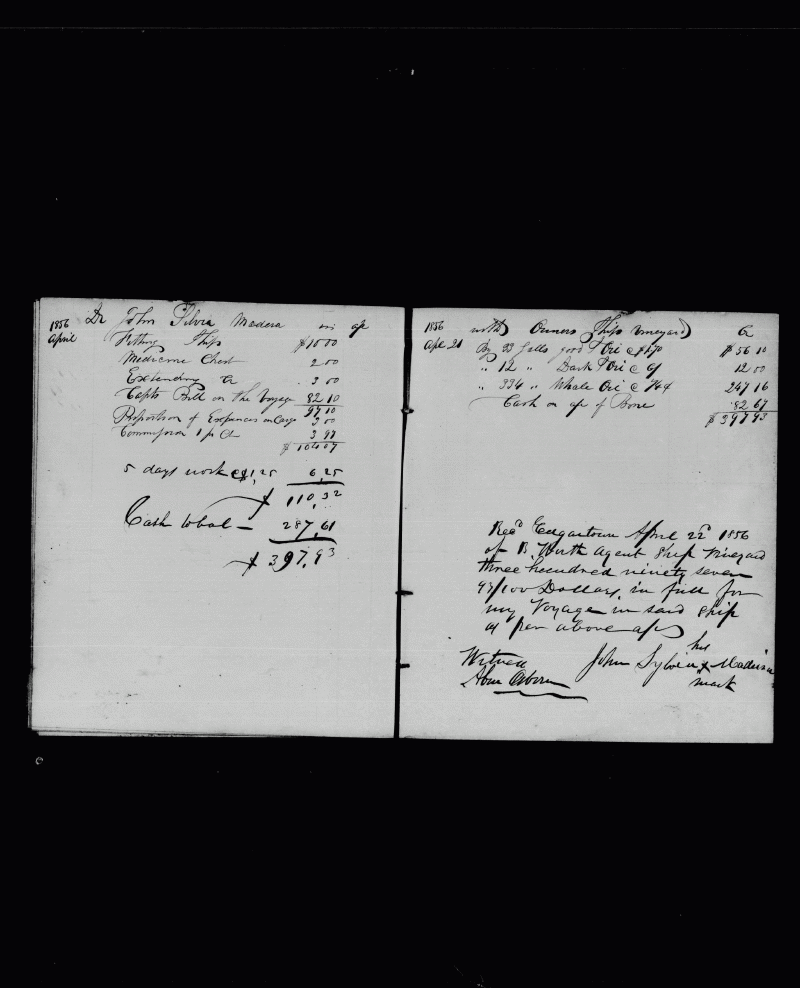 1856 Dr John Silvia Madera in a/c
April Fitting Ship $10 00
Medicine Chest 2 00
Extending &c 3 00
Capts Bill on the Voyage 82 10
97 10
Proportion of Expences on Cargo 3 00
Commission 4 pr Ct 3 97
$104 07
5 days work @ $1,25 6,25
$110,32
Cash to bal — 287,61
$397,93
1856 with Owners Ship Vineyard Cr
Apl 21 By 33 Galls good S Oil @ $1.70 $56 10
" 12 " Dark S Oil @ $1 12 00
" 334 " Whale Oil @ 74 247 16
Cash on a/c of Bone 82 67
$397 93
Recd Edgartown April 22d 1856
of B. Worth Agent Ship Vineyard
three hundred ninety seven
93/100 Dollars, in full for
my Voyage in said Ship
as per above a/c
his
Witness John Sylvia x Madeira
Abm Osborn mark